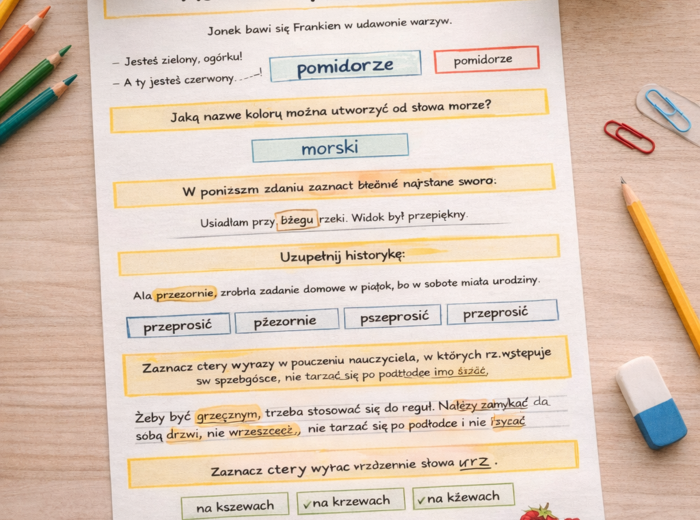 Jonek bawi się Frankien w udawonie warzyw.
– Jesteś zielony, ogórku!
– A ty jesteś czerwony.....!
pomidorze
pomidorze
Jaką nazwe koloru można utworzyć od słowa morze?
morski
W poniższm zdaniu zaznact błećnié najrstane sworo:
Usiadłam przy bżegu rzeki. Widok był przepiękny.
Uzupełnij historykę:
Ala przezornie, zrobrła zadanie domowe w piątok, bo w sobote miała urodziny.
przeprosić pżezornie pszeprosić przeprosić
Zaznacz ctery wyrazy w pouczeniu nauczyciela, w których rz.wstępuje
sw spzebgósce, nie tarzać się po podłłodce imo
Żeby być grzęcznym, trzeba stosować się do reguł. Należy zamykać da
sobą drzwi, nie wrzeszcećć, nie tarzać się po podłodce i nie
Zaznacz ctery wyłac vrzdzennie słowa urz.
na kszewach ✓na krzewach ✓na kżewach